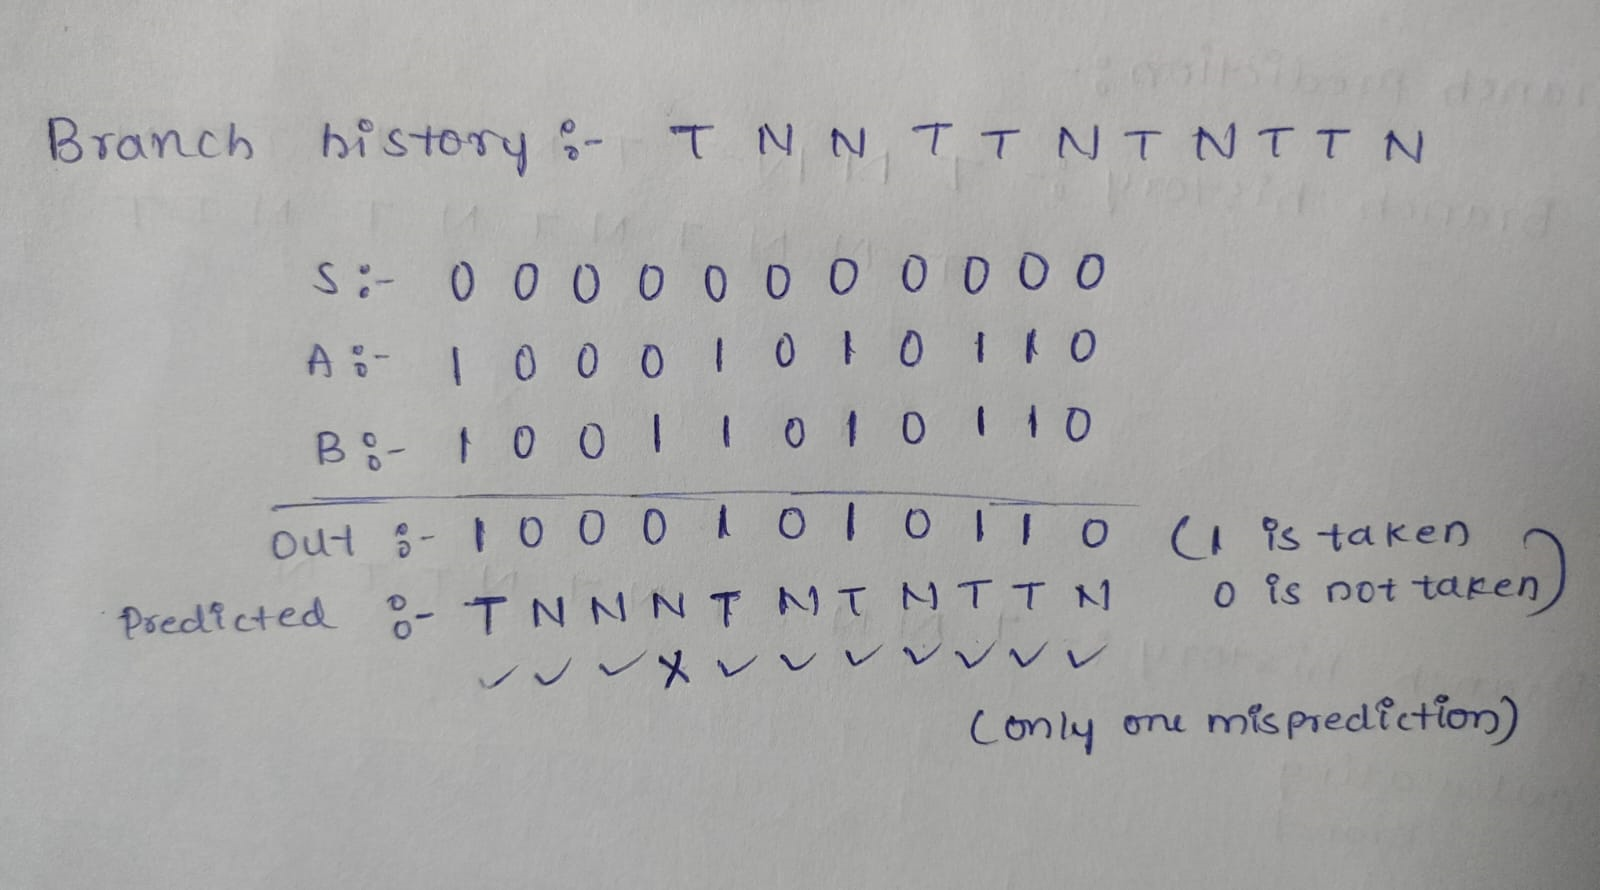 Branch history :- T N N T T N T N T T N
S :- 0 0 0 0 0 0 0 0 0 0 0
A :- 1 0 0 0 1 0 1 0 1 1 0
B :- 1 0 0 1 1 0 1 0 1 1 0
Out :- 1 0 0 0 1 0 1 0 1 1 0 (1 is taken
0 is not taken)
Predicted :- T N N N T N T N T T N
✓ ✓ ✓ X ✓ ✓ ✓ ✓ ✓ ✓ ✓
(only one misprediction)